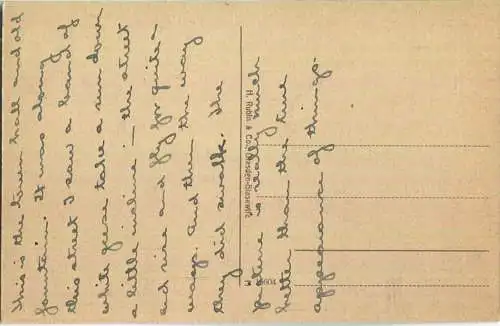 This is the town hall and old
fountain. It was along
this street I saw a band of
white geese take a run down
a little incline – the street
and rise and fly for quite a
ways. And then the way
they did swalk. The
picture is really much
better than the true
appearance of things.
H. Rubin & Co., Dresden-Blasewitz